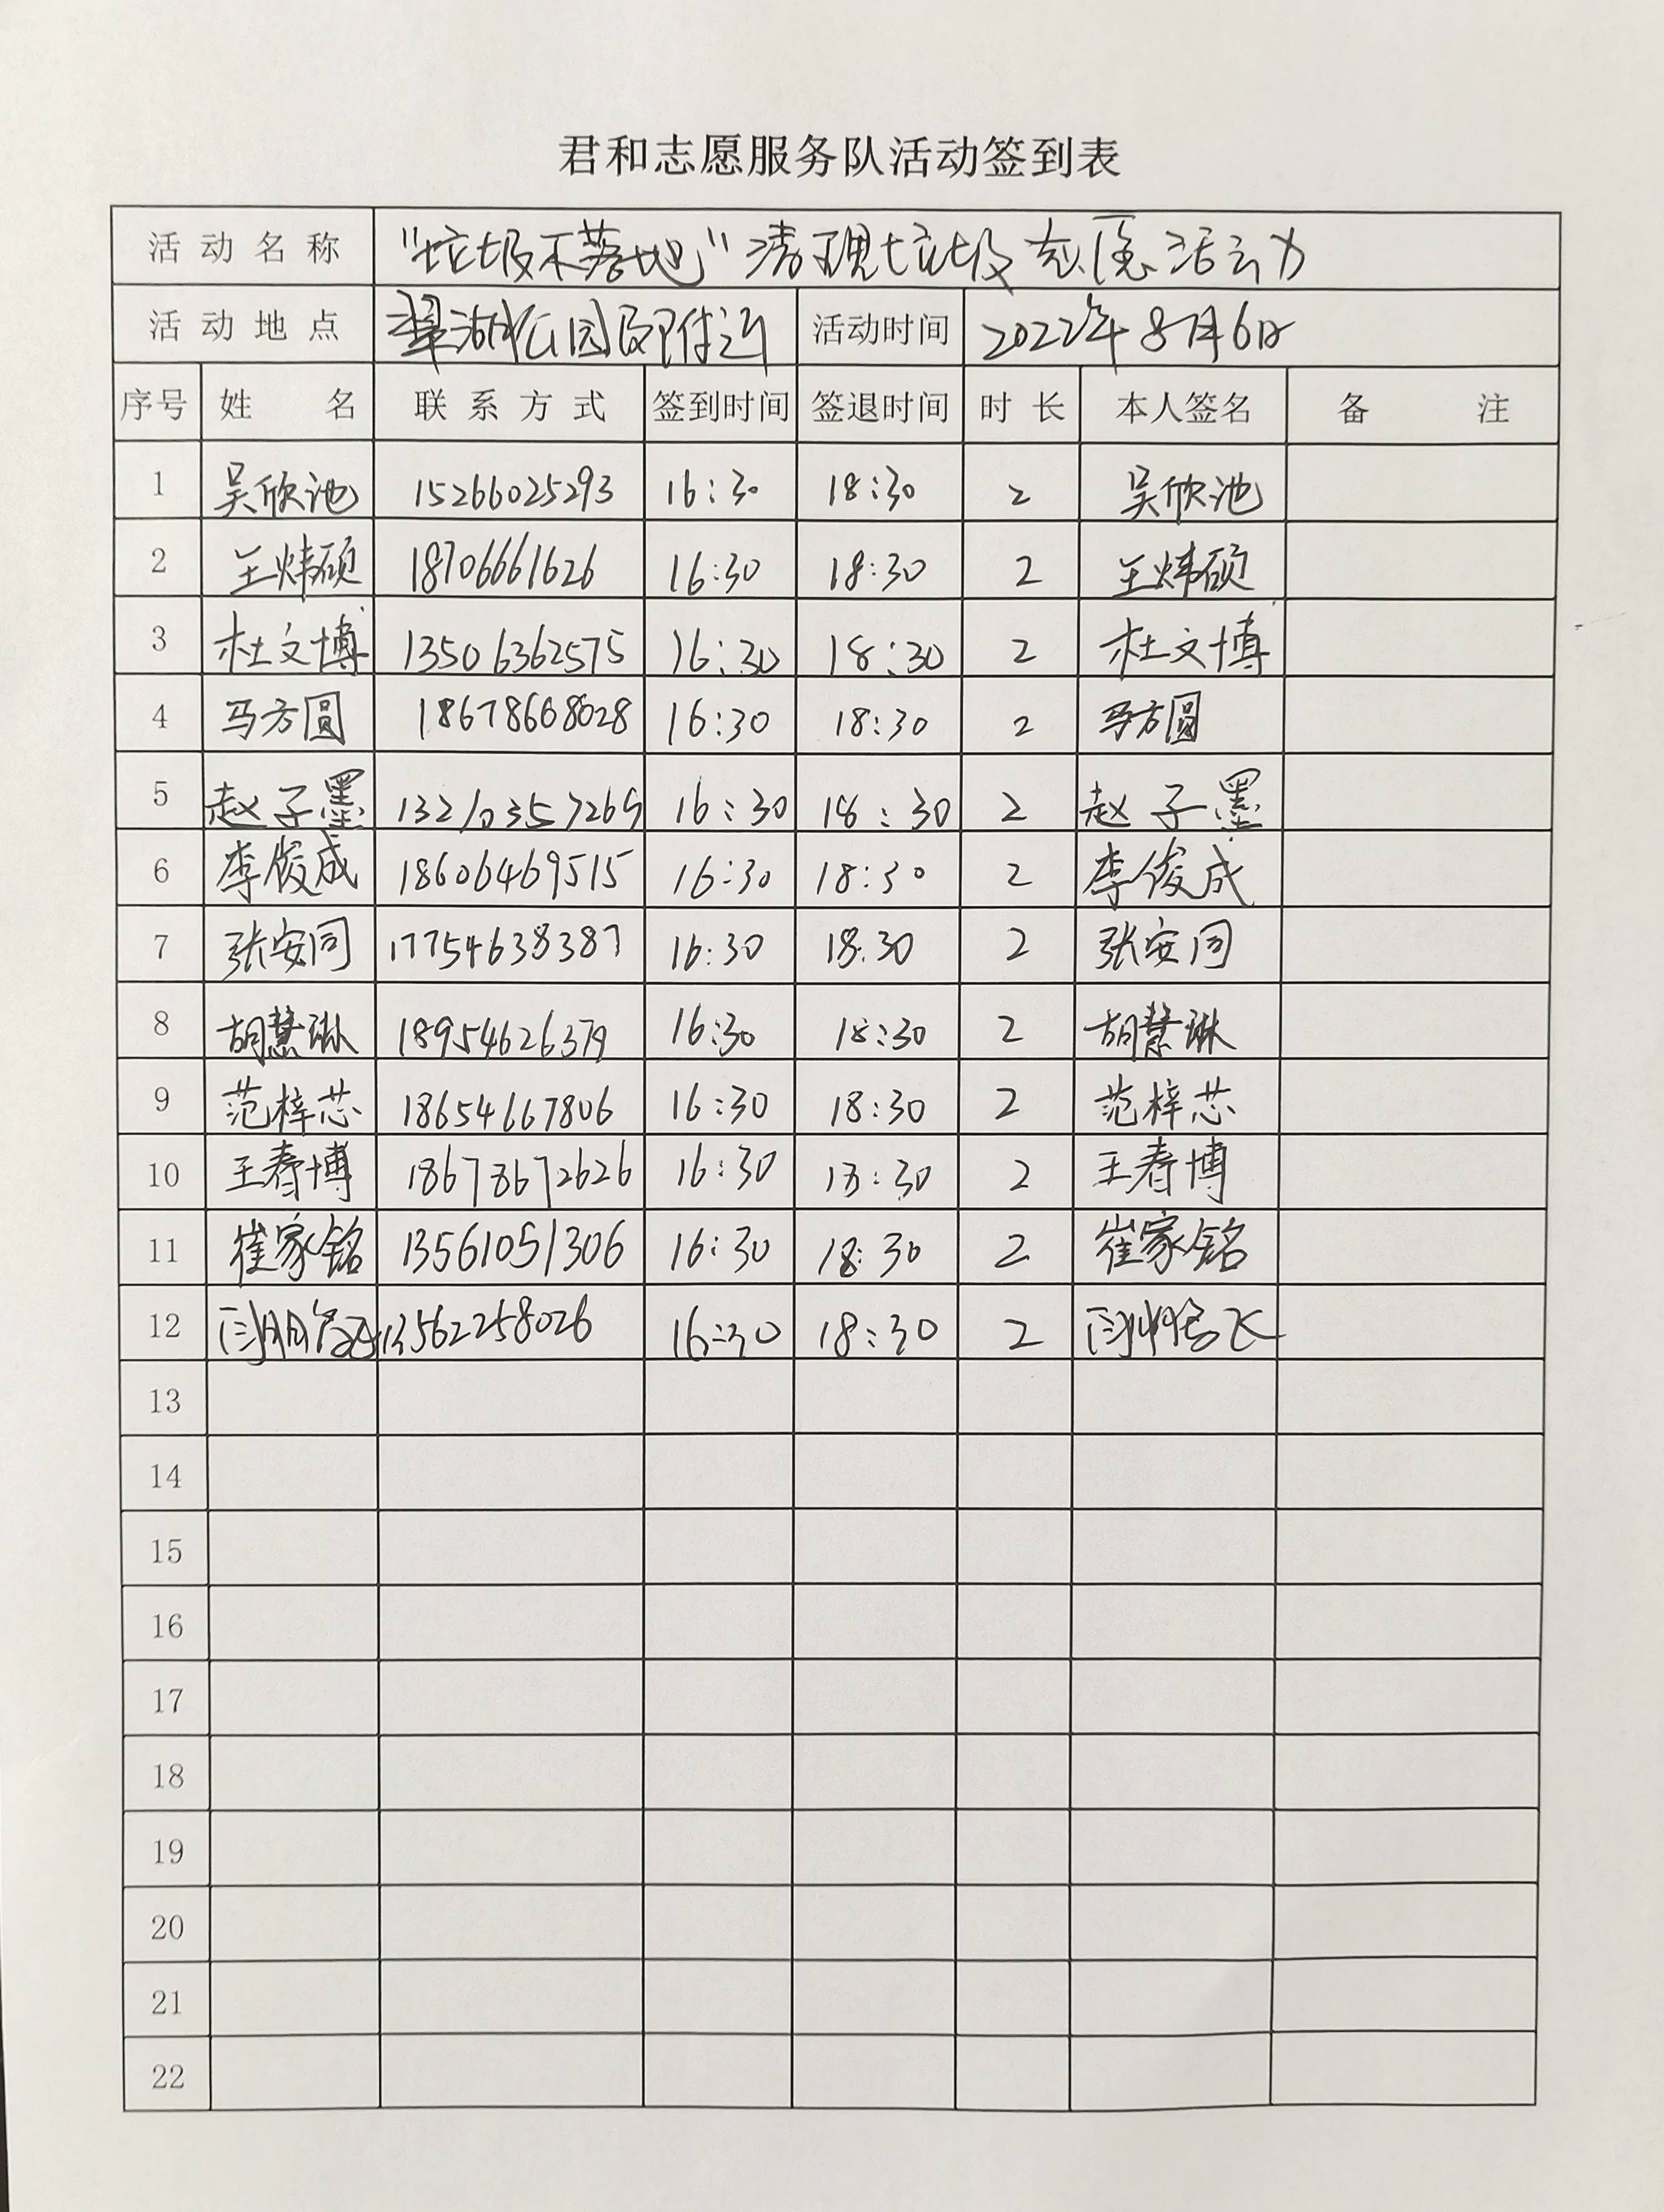 君和志愿服务队活动签到表
活动名称 "垃圾不落地"清理垃圾志愿活动
活动地点 翠湖公园及附近 活动时间 2022年8月6日
序号 姓名 联系方式 签到时间 签退时间 时长 本人签名 备注
1 吴欣池 15266025293 16:30 18:30 2 吴欣池
2 王炜硕 18706661626 16:30 18:30 2 王炜硕
3 杜文博 13506362575 16:30 18:30 2 杜文博
4 马方圆 18678668028 16:30 18:30 2 马方圆
5 赵子墨 13210357269 16:30 18:30 2 赵子墨
6 李俊成 18606469515 16:30 18:30 2 李俊成
7 张安同 17754638387 16:30 18:30 2 张安同
8 胡慧琳 18954626379 16:30 18:30 2 胡慧琳
9 范梓芯 18654667806 16:30 18:30 2 范梓芯
10 王春博 18678672626 16:30 18:30 2 王春博
11 崔家铭 13561051306 16:30 18:30 2 崔家铭
12 13562258026 16:30 18:30 2
13
14
15
16
17
18
19
20
21
22